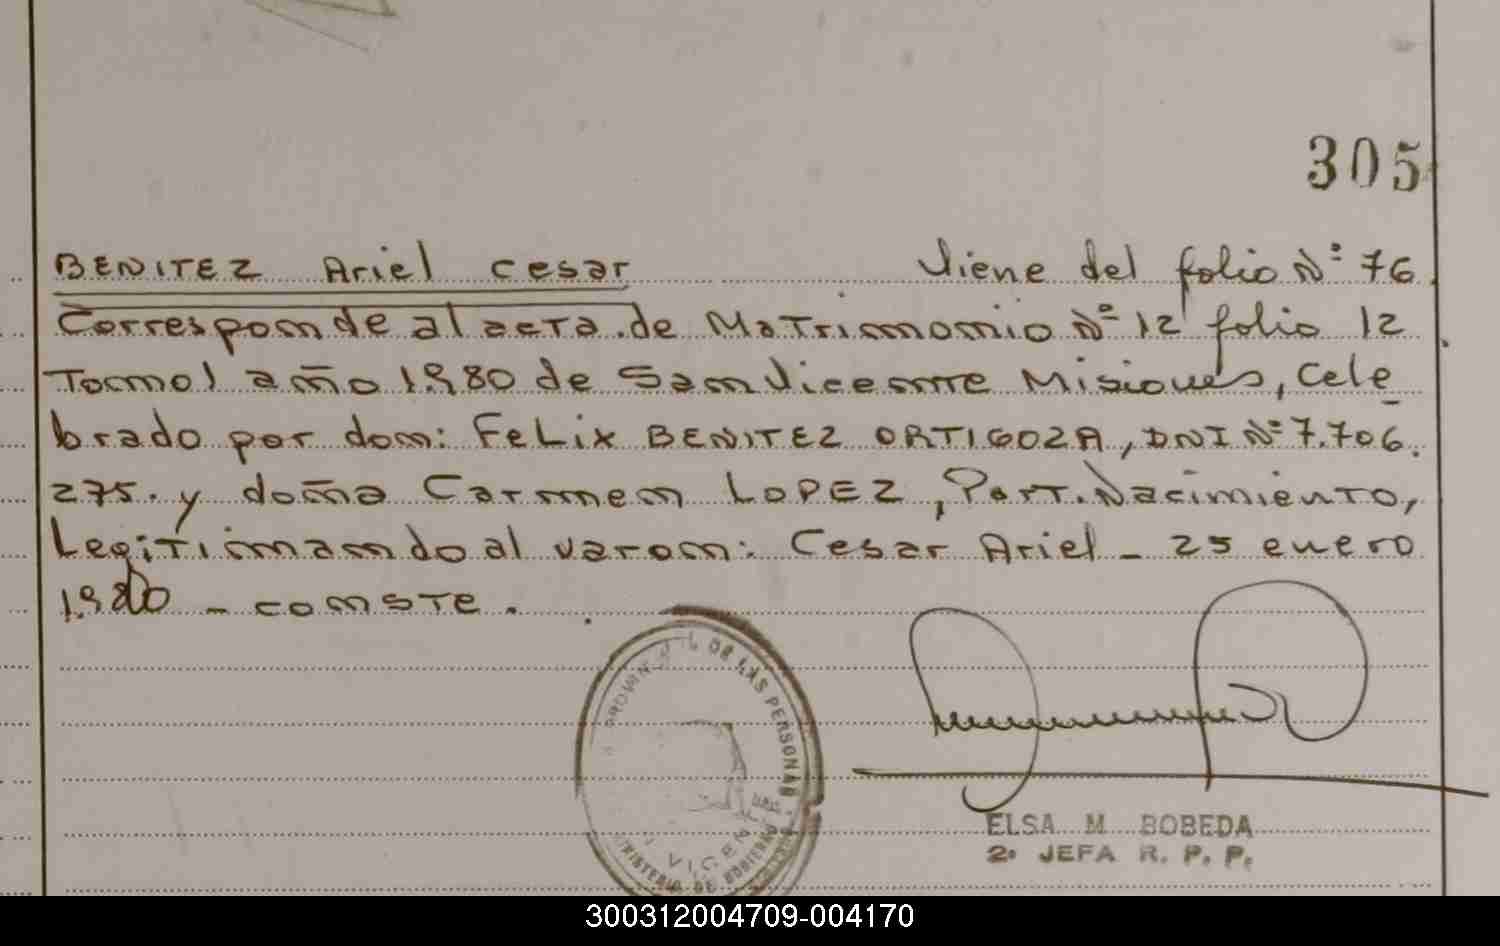 305
BENITEZ Ariel cesar Viene del folio Nº 76
Corresponde al acta de Matrimonio Nº 12 folio 12
Tomo 1 año 1.980 de San Vicente Misiones, cele
brado por don: Felix BENITEZ ORTIGOZA, DNI Nº 7.706.
275. y doña Carmen LOPEZ, Part. Nacimiento,
Legitimando al varon: Cesar Ariel - 25 enero
1.980 - conste.
DE LAS PERSONAS
MINISTERIO DE GOBIERNO
ELSA M. BOBEDA
2º JEFA R. P. P.
300312004709-004170